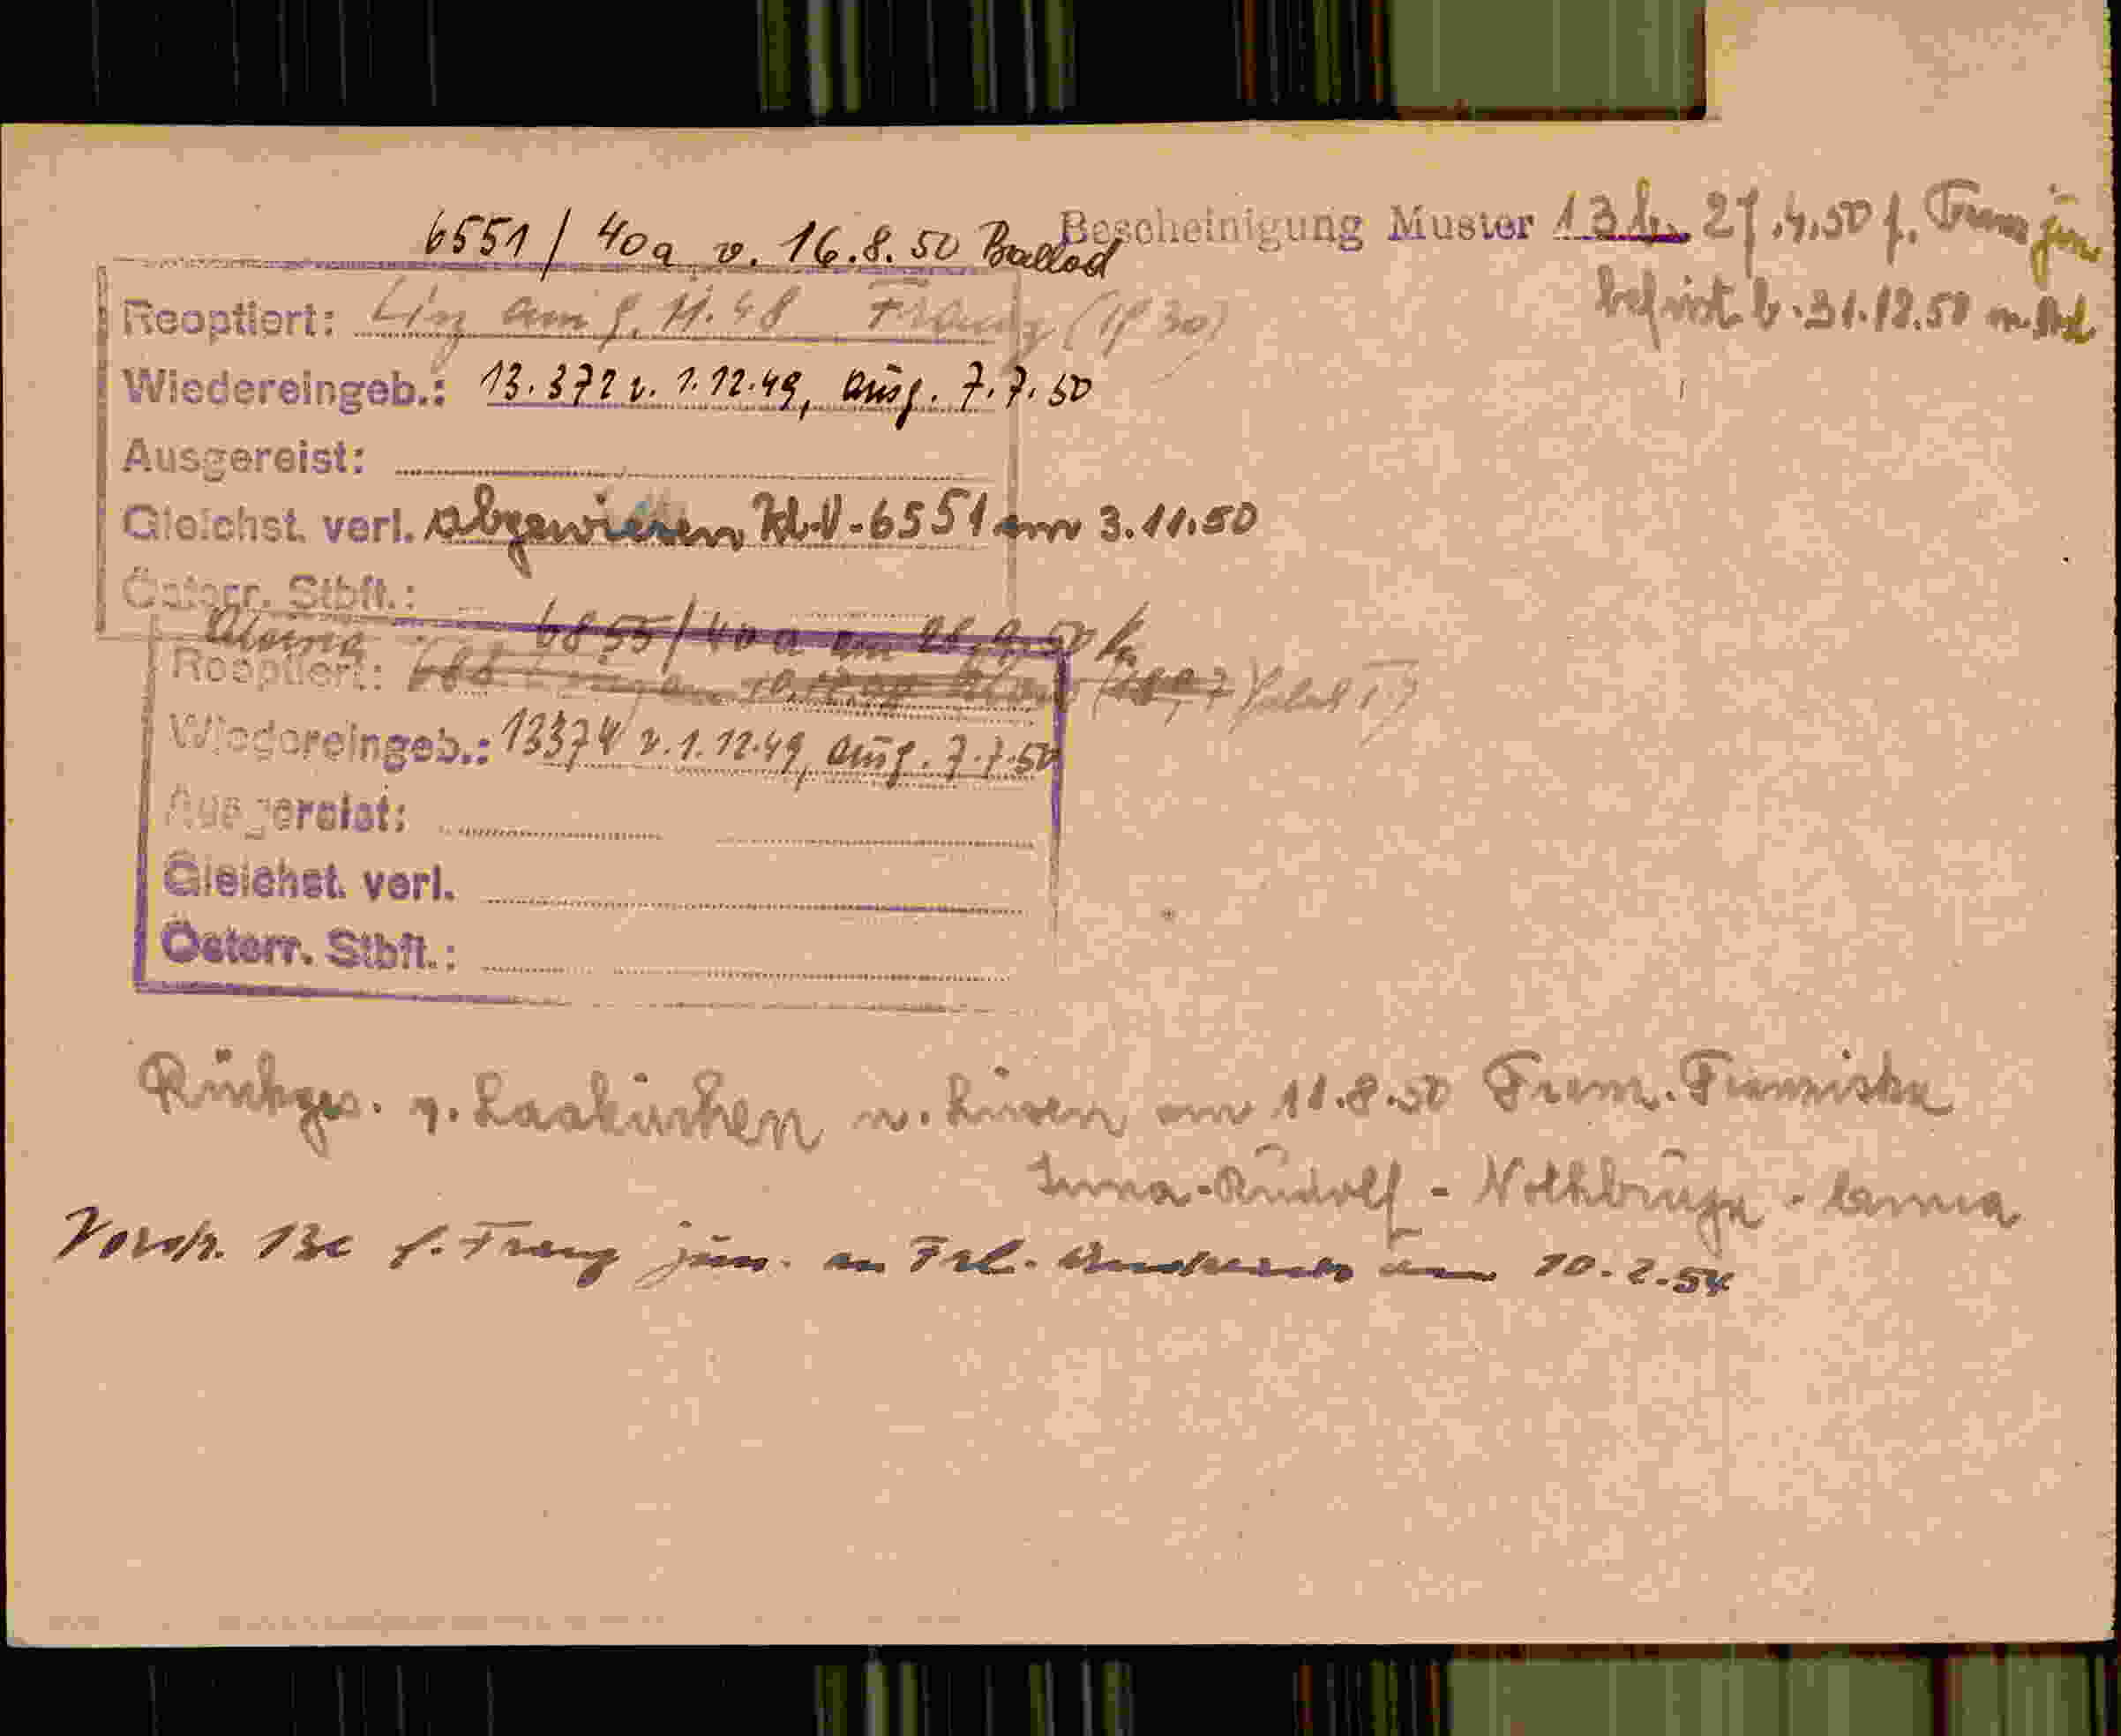 6551/40a v. 16.8.50 Ballod
Bescheinigung Muster 13 b. 27.4.50 f. Franz jun.
befrist. b. 31.12.50
Reoptiert: Linz am 9.11.48 Franz (1930)
Wiedereingeb.: 13.372 v. 1.12.49, ausg. 7.7.50
Ausgereist:
Gleichst. verl. abgewiesen Kl.V-6551 am 3.11.50
Österr. Stbft.:
6855/40a am 28.9.50
Reoptiert:
Wiedereingeb.: 13374 v. 1.12.49, ausg. 7.7.50
Ausgereist:
Gleichst. verl.
Österr. Stbft.:
Rückges. v. Laakirchen n. Lüsen am 11.8.50 Franz. Franziska
Rudolf - Notburga -
Vordr. 13c f. Franz jun. an Frl. am 10.2.54